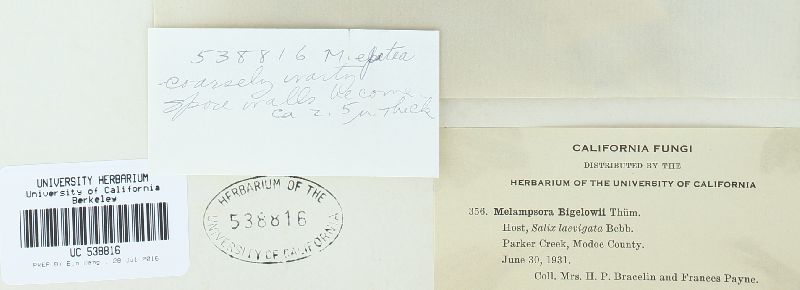 538816 M. epitea
coarsely warty
spore walls become
ca 2.5µ thick
UNIVERSITY HERBARIUM
University of California
Berkeley
UC 538816
28 Jul 2016
HERBARIUM OF THE
538816
UNIVERSITY OF CALIFORNIA
CALIFORNIA FUNGI
DISTRIBUTED BY THE
HERBARIUM OF THE UNIVERSITY OF CALIFORNIA
356. Melampsora Bigelowii Thüm.
Host, Salix laevigata Bebb.
Parker Creek, Modoc County.
June 30, 1931.
Coll. Mrs. H. P. Bracelin and Frances Payne.